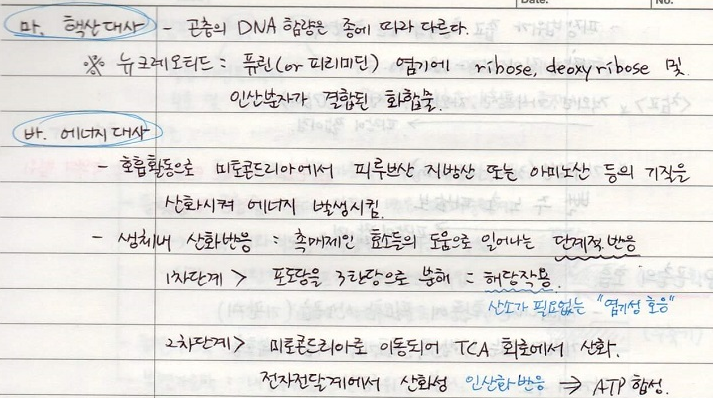 Date.
No.
마. 핵산대사 - 곤충의 DNA 함량은 종에 따라 다르다.
※ 뉴크레오티드 = 퓨린(or 피리미딘) 염기에 ribose, deoxyribose 및
인산분자가 결합된 화합물.
바. 에너지대사
- 호흡활동으로 미토콘드리아에서 피루브산 지방산 또는 아미노산 등의 기질을
산화시켜 에너지 발생시킴.
- 생체내 산화반응 : 촉매제인 효소들의 도움으로 일어나는 단계적 반응
1차단계 > 포도당을 3탄당으로 분해 = 해당작용.
산소가 필요없는 "혐기성 호흡"
2차단계> 미토콘드리아로 이동되어 TCA 회로에서 산화.
전자전달계에서 산화성 인산화반응 ⇒ ATP 합성.